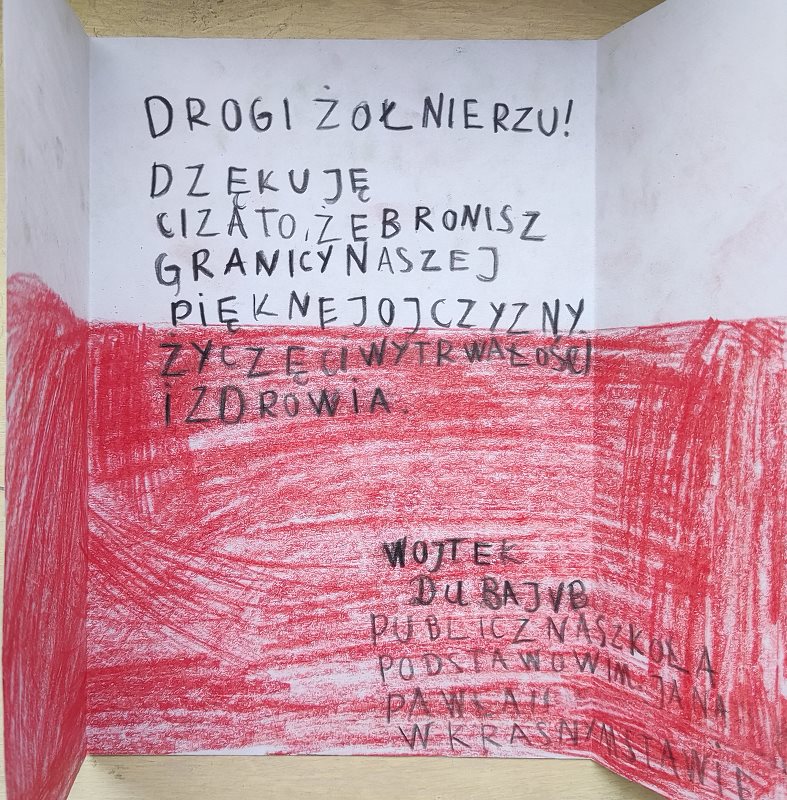 DROGI ŻOŁNIERZU!
DZĘKUJĘ
CI ZA TO, ŻE BRONISZ
GRANICY NASZEJ
PIĘKNEJ OJCZYZNY.
ŻYCZĘ CI WYTRWAŁOŚCI
I ZDROWIA.
WOJTEK
DUBAJ VB
PUBLICZNA SZKOŁA
PODSTAWOW IM. JANA
PAWŁA II
W KRASNYMSTAWIE